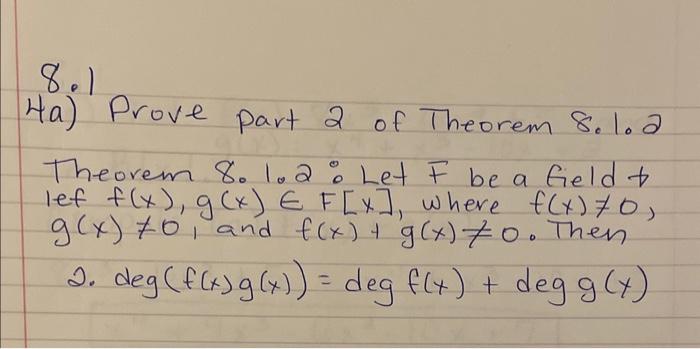 8.1
4a) Prove part 2 of Theorem 8.1.2
Theorem 8.1.2: Let F be a field &
let f(x), g(x) ∈ F[x], where f(x)≠0,
g(x)≠0, and f(x)+g(x)≠0. Then
2. deg(f(x)g(x)) = deg f(x) + deg g(x)